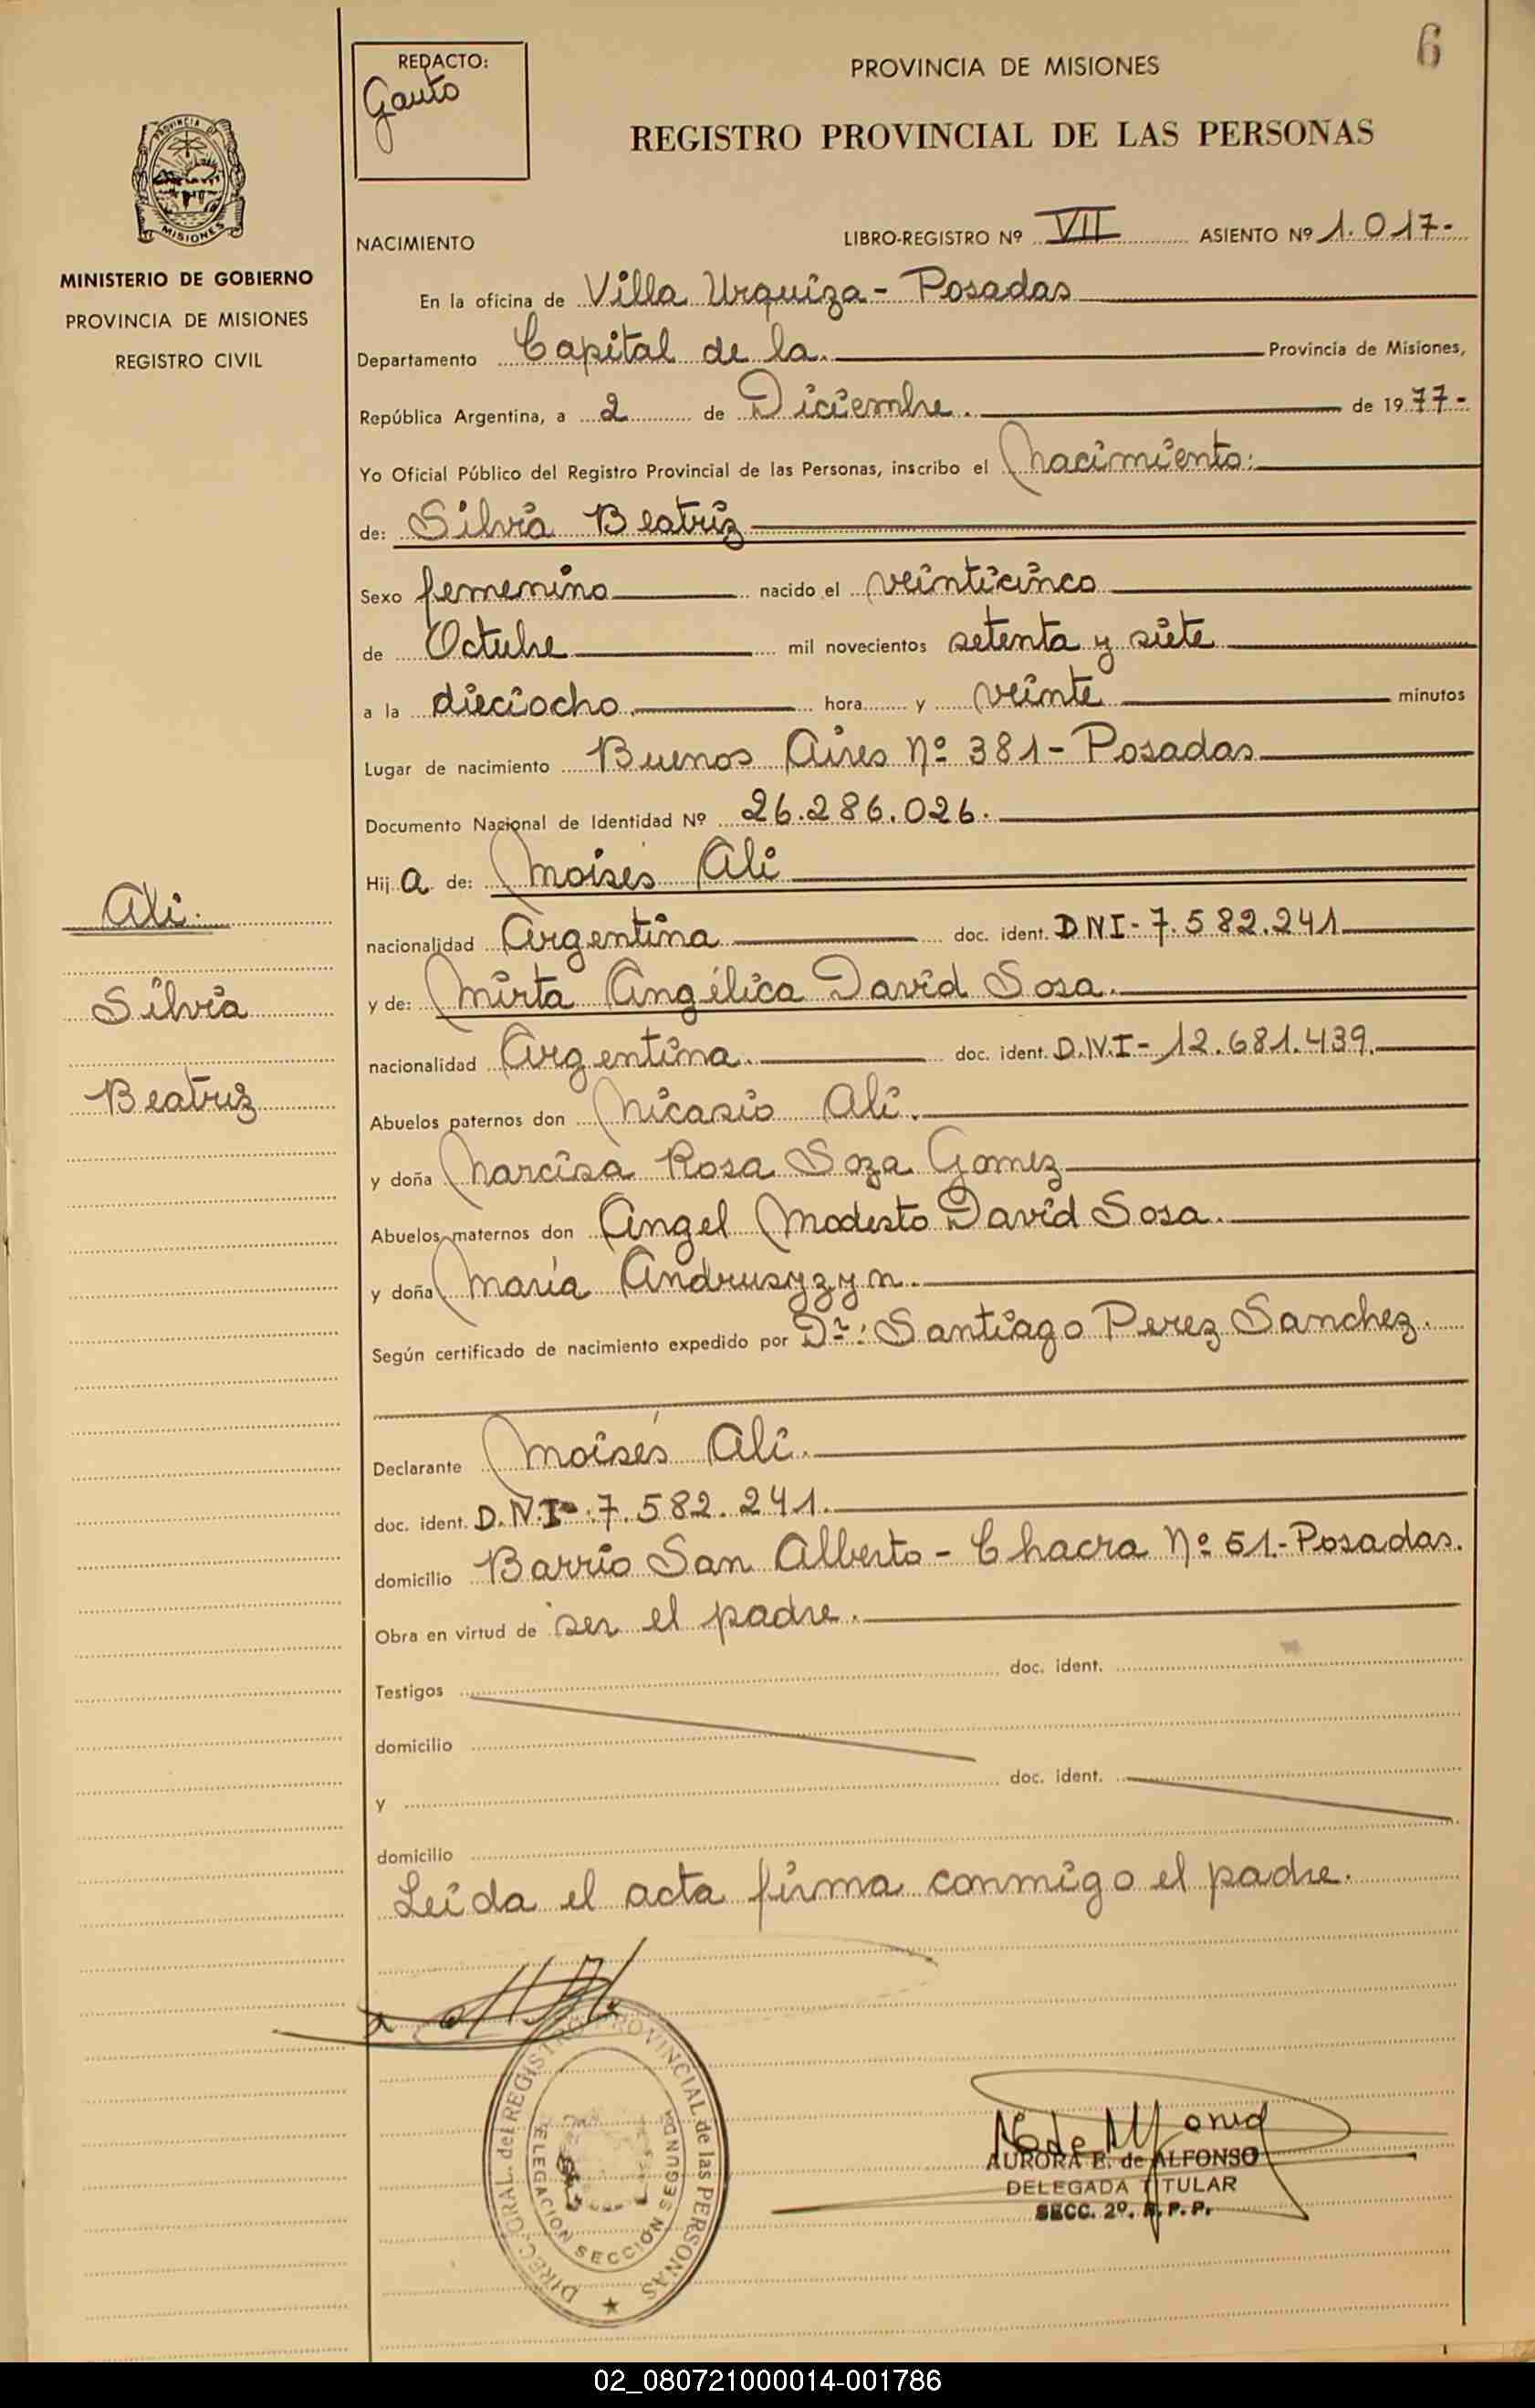 6
REDACTO:
Gauto
PROVINCIA DE MISIONES
REGISTRO PROVINCIAL DE LAS PERSONAS
PROVINCIA DE
MISIONES
MINISTERIO DE GOBIERNO
PROVINCIA DE MISIONES
REGISTRO CIVIL
NACIMIENTO LIBRO-REGISTRO Nº VII ASIENTO Nº 1.017-
En la oficina de Villa Urquiza - Posadas
Departamento Capital de la. Provincia de Misiones,
República Argentina, a 2 de Diciembre. de 1977-
Yo Oficial Público del Registro Provincial de las Personas, inscribo el Nacimiento:
de: Silvia Beatriz
Sexo femenino nacido el veinticinco
de Octubre mil novecientos setenta y siete
a la dieciocho. hora y veinte minutos
Lugar de nacimiento Buenos Aires Nº 381 - Posadas
Documento Nacional de Identidad Nº 26.286.026.
Hija de: Moises Ali
nacionalidad Argentina doc. ident. DNI-7.582.241
y de: Mirta Angélica David Sosa.
nacionalidad Argentina. doc. ident. D.N.I-12.681.439.
Abuelos paternos don Nicasio Ali.
y doña Narcisa Rosa Soza Gomez
Abuelos maternos don Angel Modesto David Sosa.
y doña María Andrusyzyn.
Según certificado de nacimiento expedido por Dr: Santiago Perez Sanchez.
Declarante Moisés Ali.
doc. ident. D.N.I-7.582.241.
domicilio Barrio San Alberto - Chacra Nº 51.- Posadas.
Obra en virtud de ser el padre.
Testigos doc. ident.
domicilio
y doc. ident.
domicilio
Leida el acta firma conmigo el padre.
Ali.
Silvia
Beatriz
DIREC. GRAL. del REGISTRO PROVINCIAL de las PERSONAS
DELEGACION SECCION SEGUNDA
AURORA E. de ALFONSO
DELEGADA TITULAR
SECC. 2º. R.P.P.
02_080721000014-001786